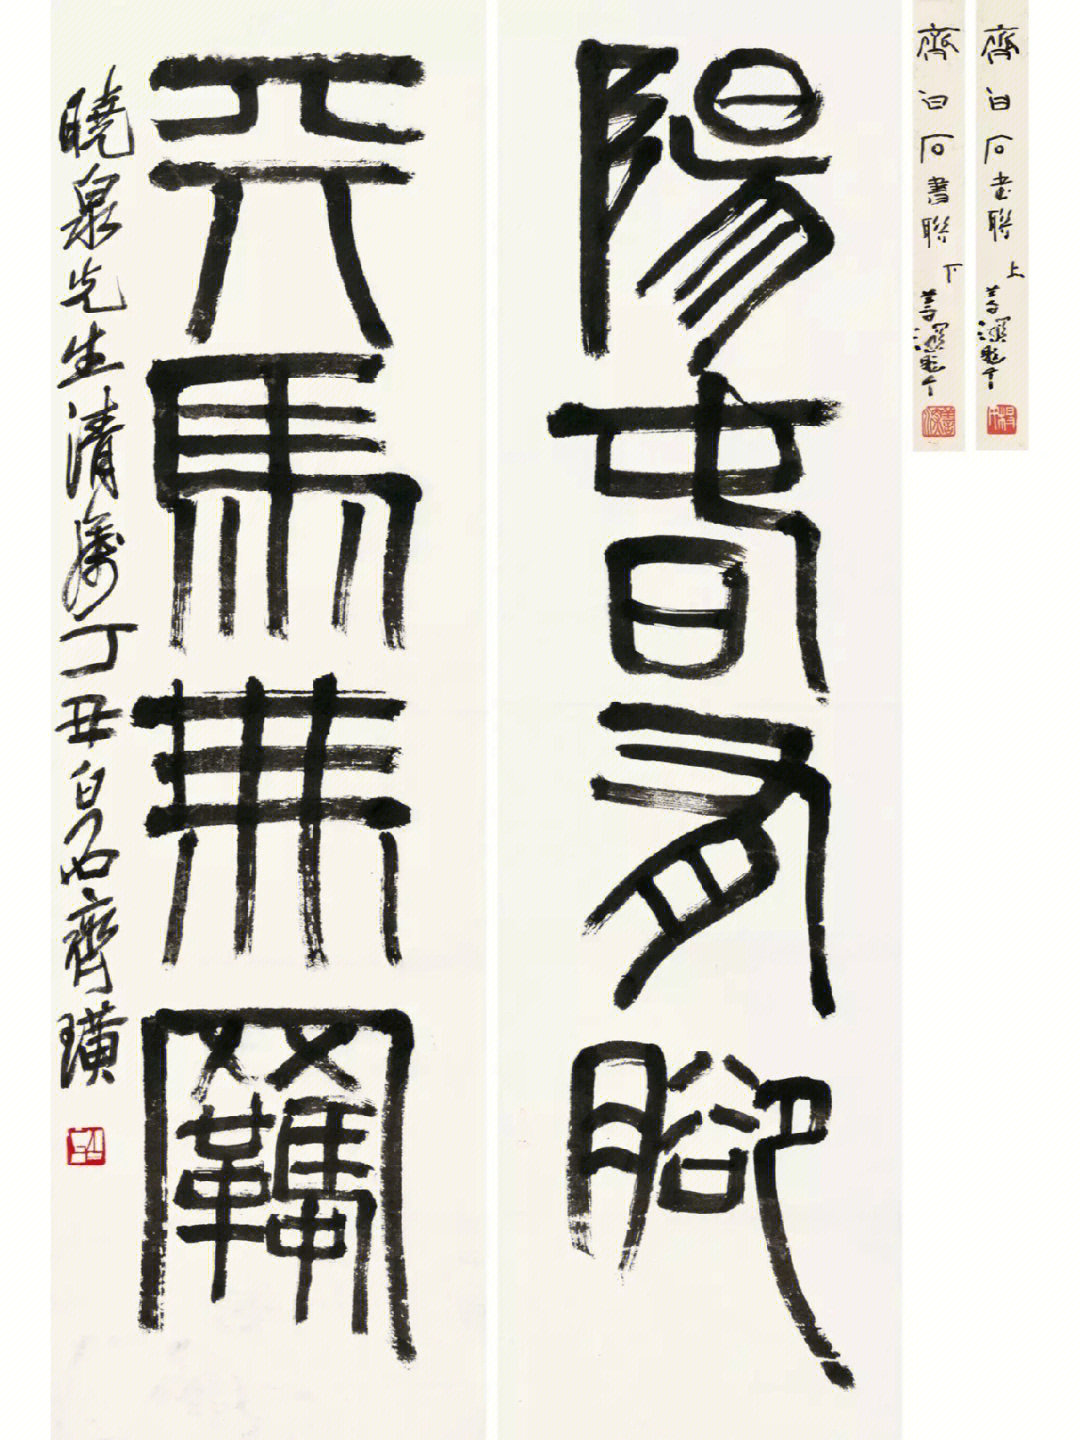 齊白石書聯 上
齊白石書聯 下
陽春有腳
天馬無羈
曉泉先生清屬丁丑白石齊璜